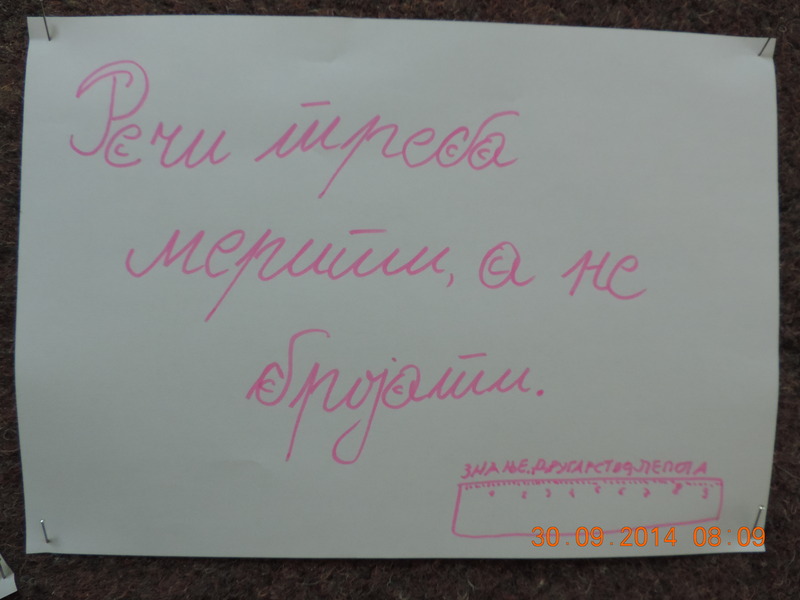 Речи треба
мерити, а не
бројати.
ЗНАЊЕ, ДРУГАРСТВО, ЛЕПОТА
1 2 3 4 5 6 7 8 9
30.09.2014 08:09